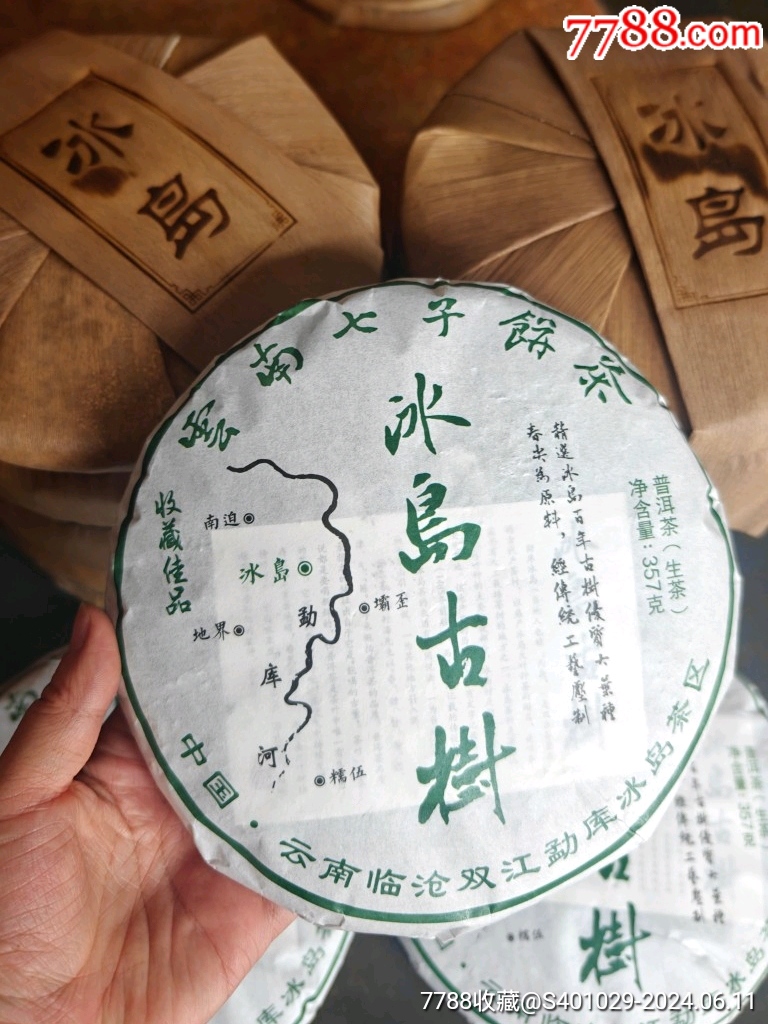 7788.com
冰島
冰島
雲南七子餅茶
冰島古樹
精選冰島百年古樹優質大葉種
春尖為原料，經傳統工藝壓制
普洱茶（生茶）
净含量：357克
收藏佳品
南迫
冰島
地界
壩歪
勐库河
糯伍
中国·云南临沧双江勐库冰岛茶区
古樹
糯伍
357克
7788收藏@S401029-2024.06.11